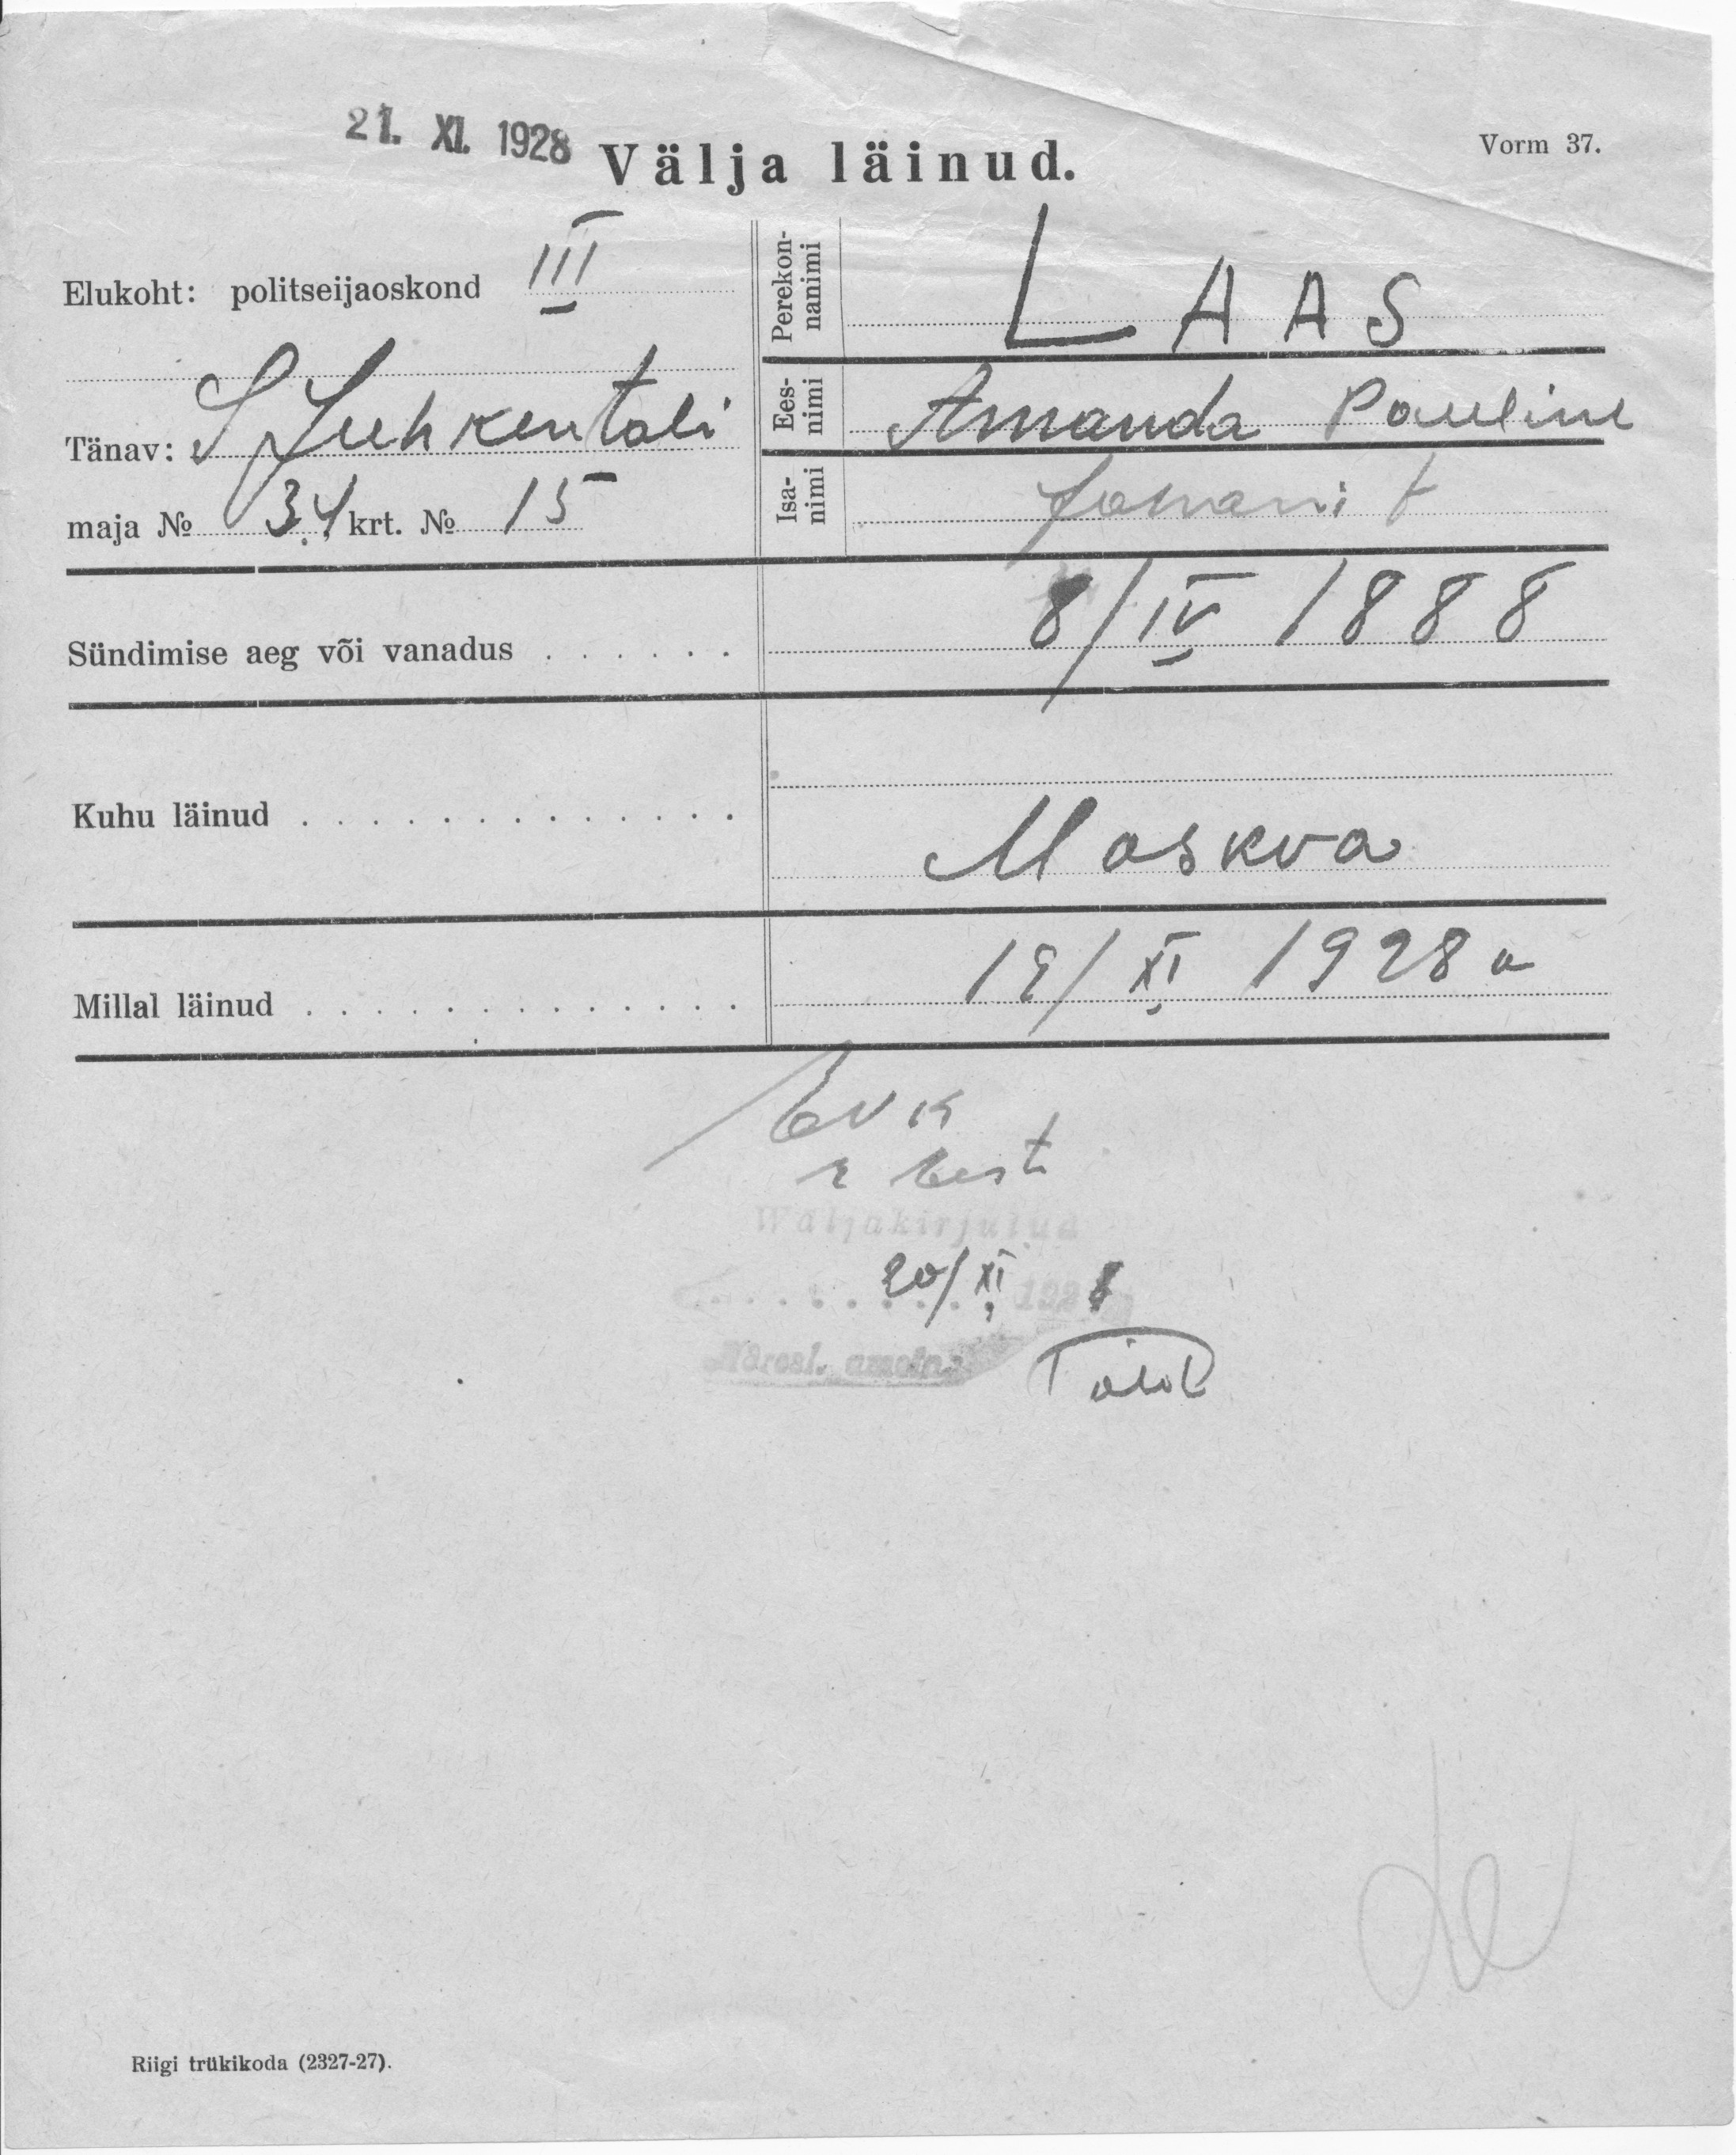 21. XI. 1928
Välja läinud.
Vorm 37.
Elukoht: politseijaoskond III
Tänav: S Juhkentali
maja № 34 krt. № 15
Perekon-
nanimi
LAAS
Ees-
nimi
Amanda Pauline
Isa-
nimi
Sündimise aeg või vanadus . . . . . .
8/IV 1888
Kuhu läinud . . . . . . . . . . . . .
Moskva
Millal läinud . . . . . . . . . . . . .
19/XI 1928 a
EVK
Eesti
Wäljakirjutud
20/XI 192
Riigi trükikoda (2327-27).